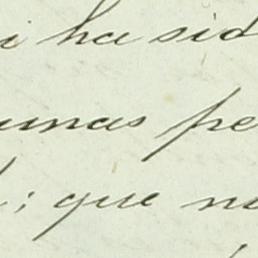 i ha sid
umas pe
; que n